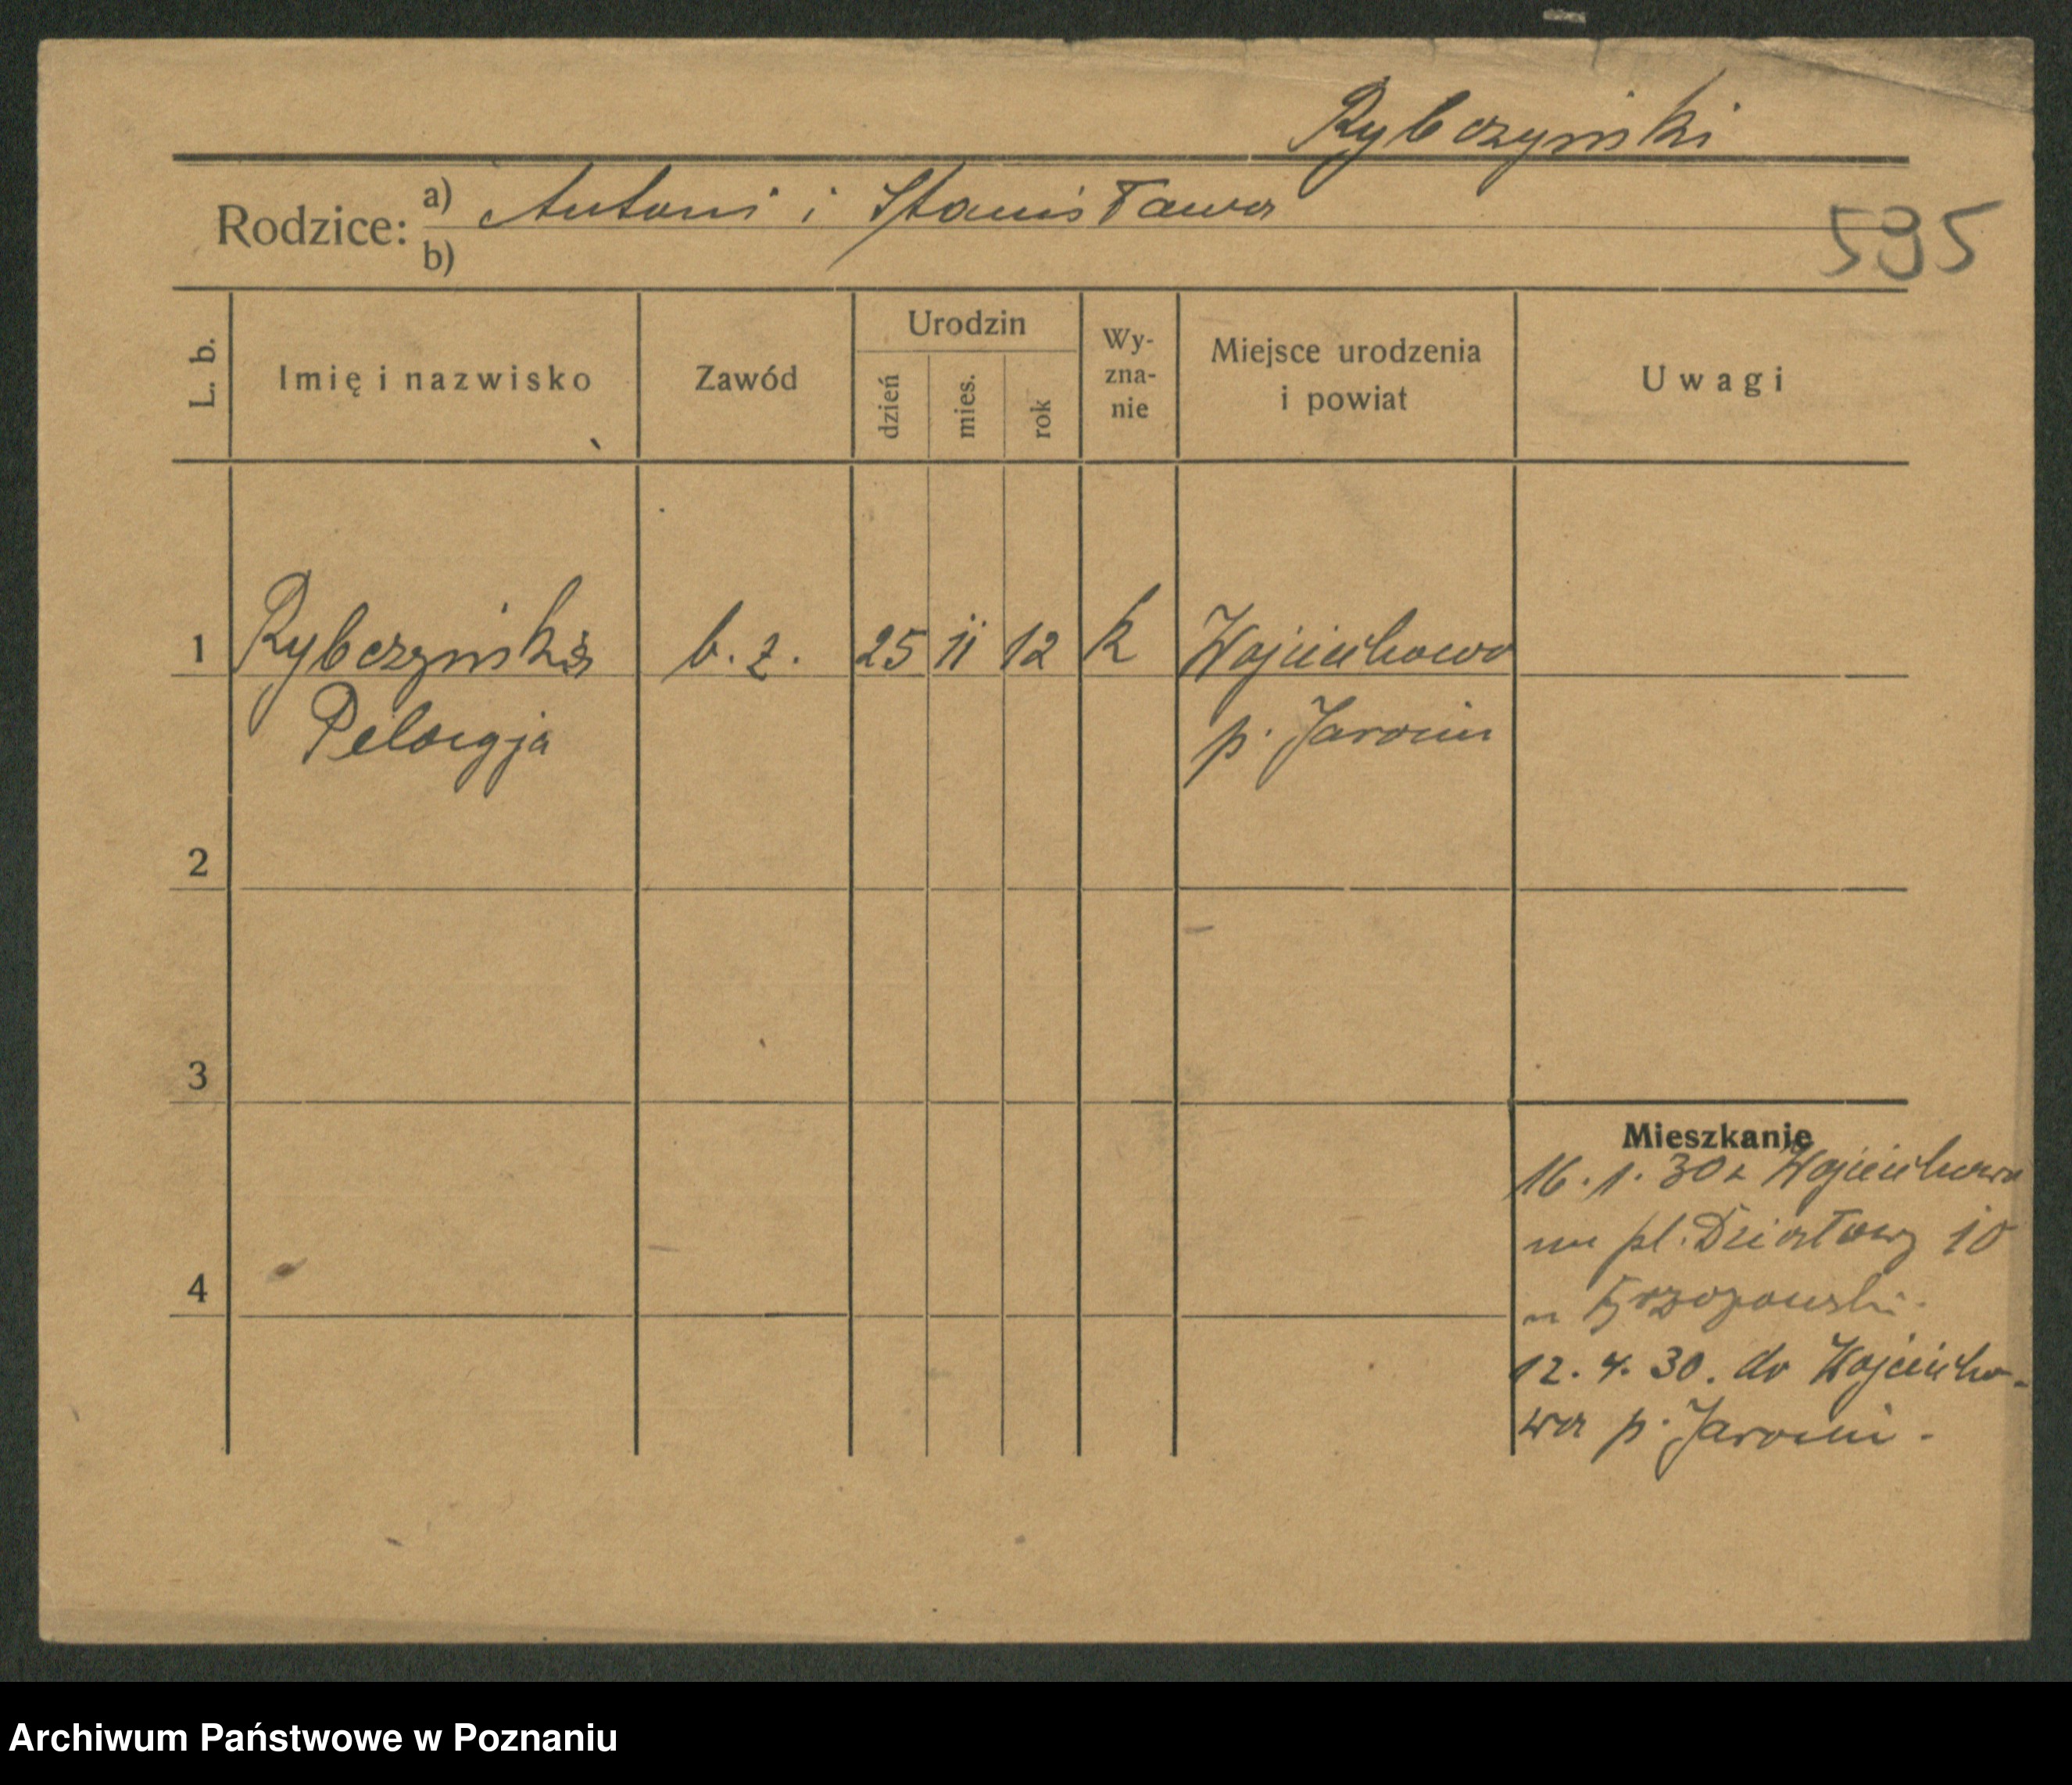 Rybczyński
Rodzice: a) Antoni i Stanisława
b)
595
L. b.
Imię i nazwisko
Zawód
Urodzin
dzień
mies.
rok
Wy-
zna-
nie
Miejsce urodzenia
i powiat
Uwagi
1 Rybczyńska b. z. 25 11 12 k Wojciechowo
Pelagja p. Jarocin
2
3
4
Mieszkanie
16. 1. 30 z Wojciechowa
na pl. Działowy 10
u Brzozowski.
12. 4. 30. do Wojciecho-
wa p. Jarocin.
Archiwum Państwowe w Poznaniu